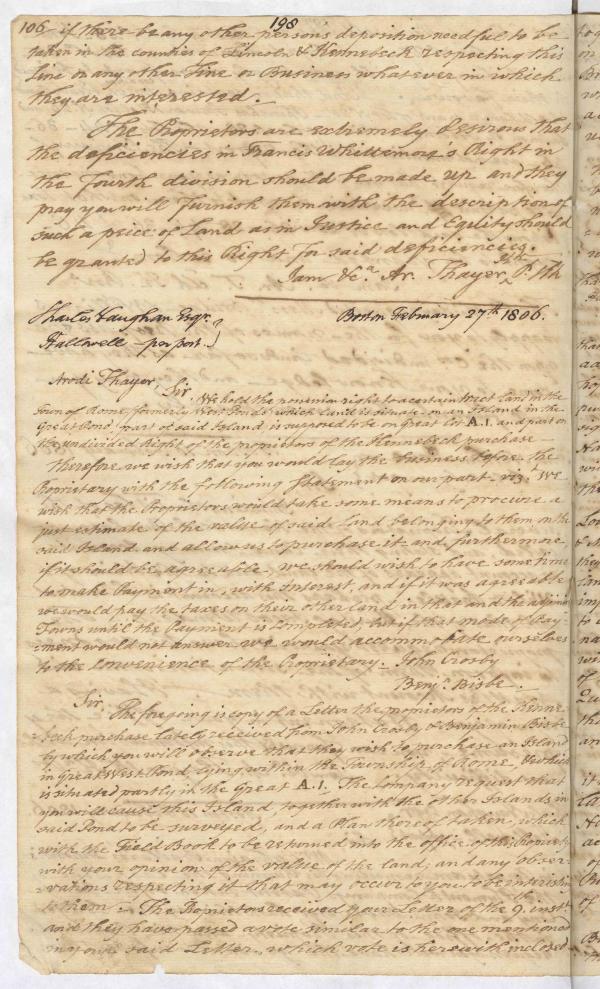 106 198
if there be any other person's deposition needful to be
taken in the counties of Lincoln & Kennebeck respecting this
Line or any other Line or Business whatever in which
they are interested.
The Proprietors are extremely desirous that
the deficiencies in Francis Whittemore's Right in
the fourth division should be made up and they
pray you will furnish them with the description of
such a peice of Land as in Justice and Equity should
be granted to this Right for said deficiencies.
I am &c.a Ar. Thayer
Charles Vaughan Esqr.
Boston February 27th 1806.
Hallowell - per post.
Arodi Thayer, Sir,
We hold the right to a certain tract land in the
Town of Rome, formerly West Ponds which Land is situate on an Island in the
Great Pond, part of said Island is supposed to be on great Lot A.1. and part on
the undivided Right of the proprietors of the Kennebeck purchase
therefore we wish that you would lay the business before the
Proprietary with the following Statement on our part vizt. We
wish that the Proprietors would take some means to procure a
just estimate of the value of said Land belonging to them on the
said Island and allow us to purchase it and furthermore
if it should be agreeable we should wish to have some time
to make Payment in, with Interest, and if it was agreeable
we would pay the taxes on their other land in that and the
Towns until the Payment is completed, but if that mode of Pay-
ment would not answer we would accommodate ourselves
to the Convenience of the Proprietary. John Crosby
Benja. Bisbe.
Sir,
The foregoing is copy of a Letter the proprietors of the Kenne-
beck purchase lately received from John Crosby & Benjamin Bisbe
by which you will observe that they wish to purchase an Island
in Great West Pond, lying within the Township of Rome, & which
is situated partly in the Great A.1. The Company request that
you will cause this Island, together with the other Islands in
said Pond to be surveyed, and a Plan thereof taken, which
with the Field Book to be returned into the office of this Propriety
with your opinion of the value of the land; and any obser-
vations respecting it that may occur to you to be
to them. The Proprietors received your Letter of the 9th inst.
and they have passed a vote similar to the one mentioned
in your said Letter, which vote is herewith inclosed